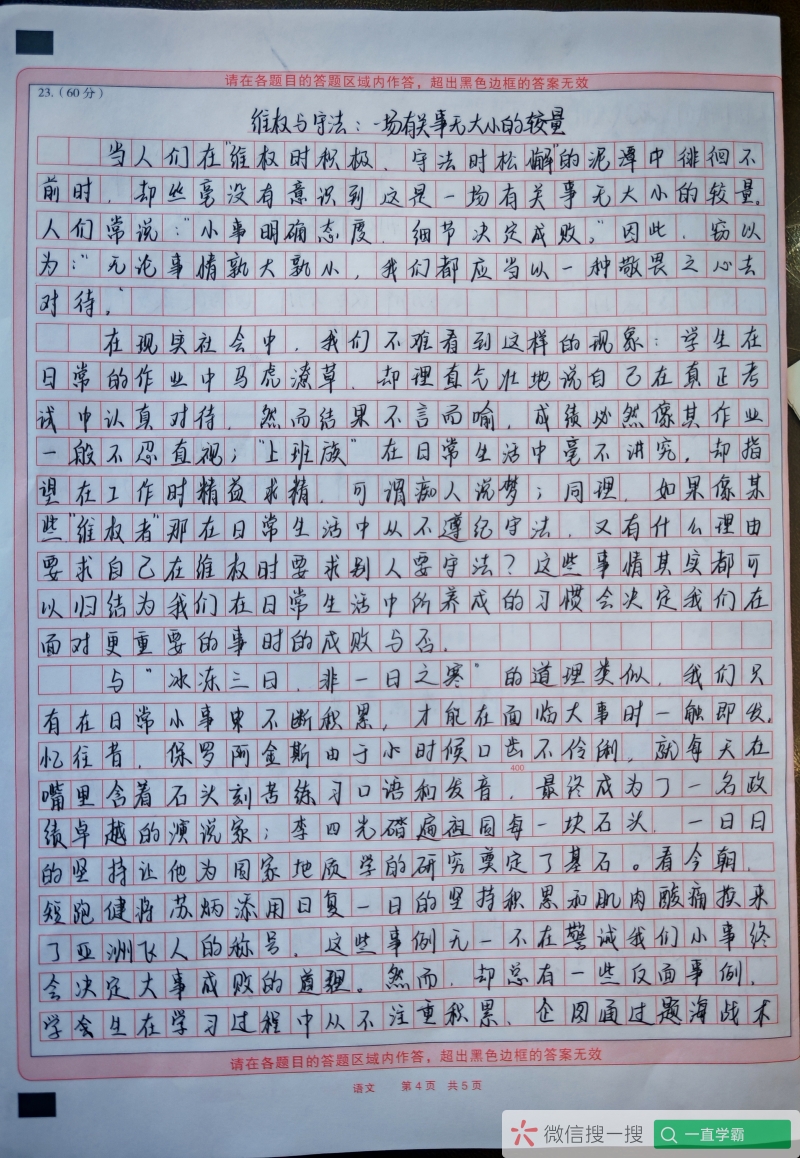 请在各题目的答题区域内作答，超出黑色边框的答案无效
23.（60分）
维权与守法：一场有关事无大小的较量
当人们在"维权时积极，守法时松懈"的泥潭中徘徊不
前时，却丝毫没有意识到这是一场有关事无大小的较量。
人们常说："小事明确态度，细节决定成败。"因此，窃以
为："无论事情孰大孰小，我们都应当以一种敬畏之心去
对待。"
在现实社会中，我们不难看到这样的现象：学生在
日常的作业中马虎潦草，却理直气壮地说自己在真正考
试中认真对待，然而结果不言而喻，成绩必然像其作业
一般不忍直视；"上班族"在日常生活中毫不讲究，却指
望在工作时精益求精，可谓痴人说梦；同理，如果像某
些"维权者"那在日常生活中从不遵纪守法，又有什么理由
要求自己在维权时要求别人要守法？这些事情其实都可
以归结为我们在日常生活中所养成的习惯会决定我们在
面对更重要的事时的成败与否。
与"冰冻三日，非一日之寒"的道理类似，我们只
有在日常小事中不断积累，才能在面临大事时一触即发。
忆往昔，保罗阿金斯由于小时候口齿不伶俐，就每天在
400
嘴里含着石头刻苦练习口语和发音，最终成为了一名政
绩卓越的演说家；李四光踏遍祖国每一块石头，一日日
的坚持让他为国家地质学的研究奠定了基石。看今朝，
短跑健将苏炳添用日复一日的坚持积累和肌肉酸痛换来
了亚洲飞人的称号。这些事例无一不在警诫我们小事终
会决定大事成败的道理。然而，却总有一些反面事例，
学生在学习过程中从不注重积累、企图通过题海战术
请在各题目的答题区域内作答，超出黑色边框的答案无效
语文 第4页 共5页
微信搜一搜 一直学霸